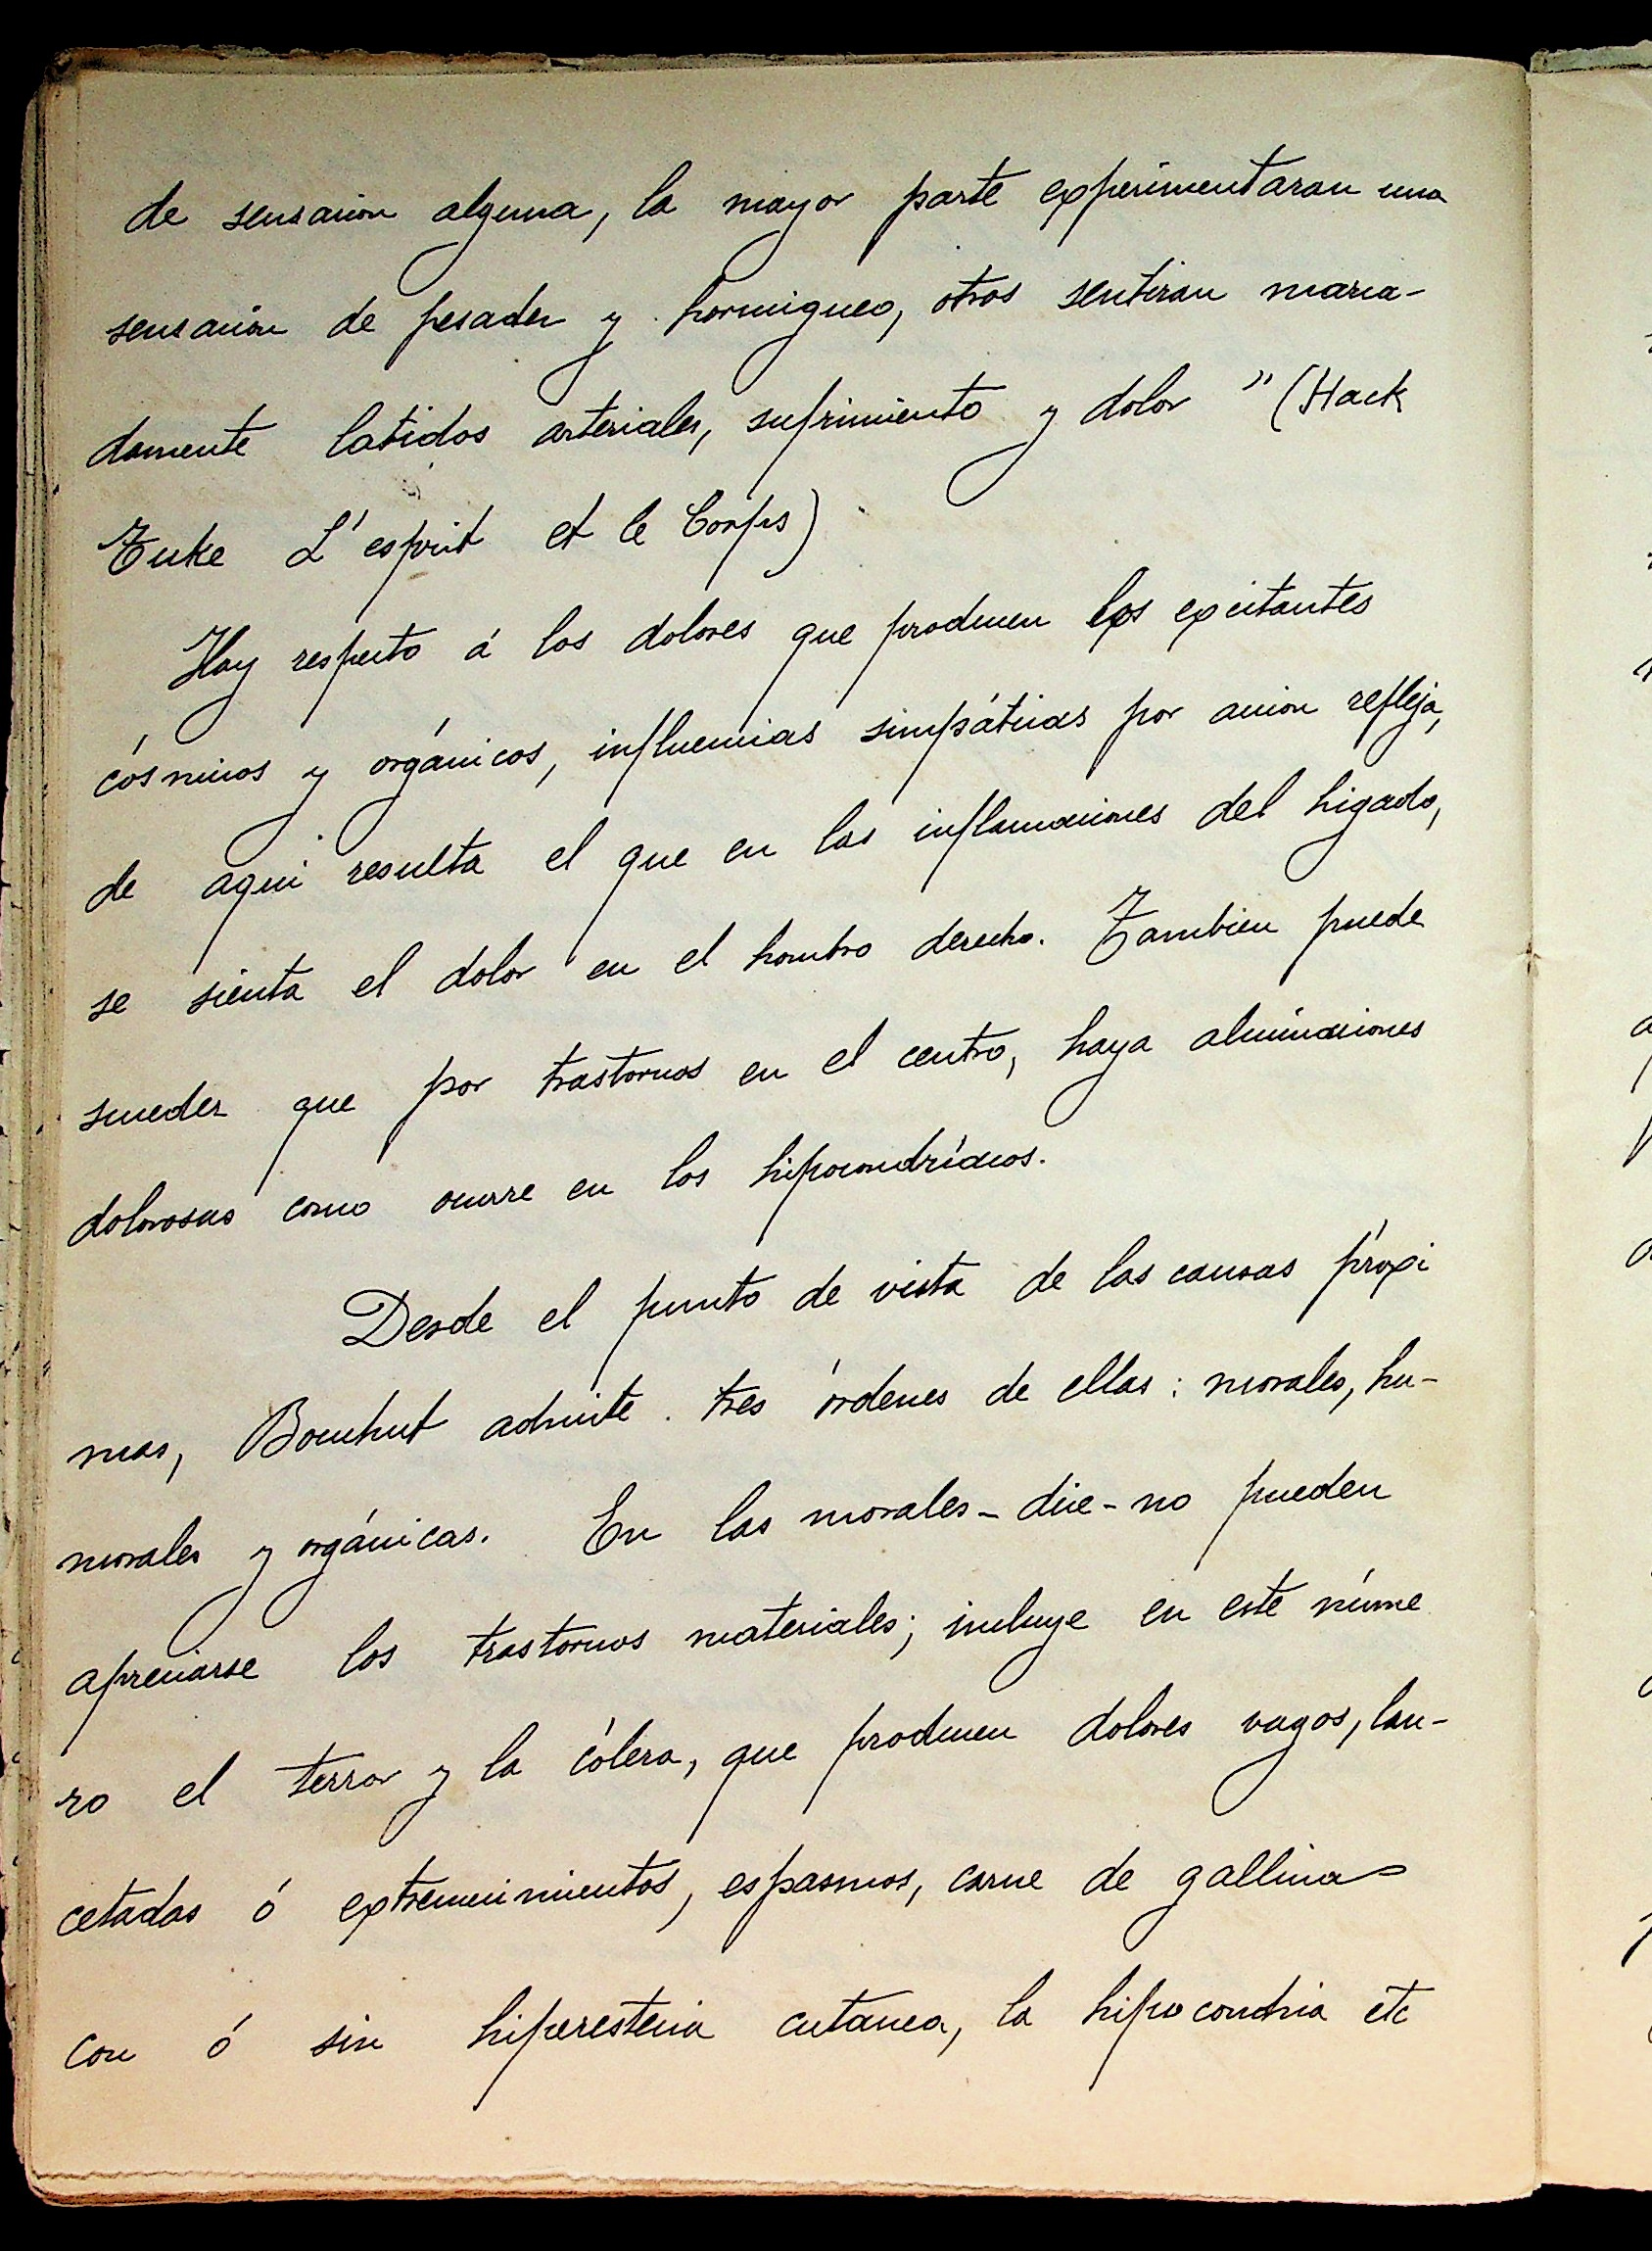 de sensacion alguna, la mayor parte experimentaran una
sensación de pesadez y hormigueo, otros sentiran marca-
damente latidos arteriales, sufrimiento y dolor" (Hack
Tuke L'esprit et le Corps)
Hay respecto á los dolores que producen los excitantes
cósmicos y orgánicos, influencias simpáticas por accion refleja,
de aqui resulta el que en las inflamaciones del higado,
se sienta el dolor en el hombro derecho. Tambien puede
suceder que por trastornos en el centro, haya alucinaciones
dolorosas como ocurre en los hipocondríacos.
Desde el punto de vista de las causas próxi
mas, Bouchut admite tres órdenes de ellas: morales, hu-
morales y orgánicas. En las morales - dice - no pueden
apreciarse los trastornos materiales; incluye en este núme
ro el terror y la cólera, que producen dolores vagos, lan-
cetadas ó extremecimientos, espasmos, carne de gallina
con ó sin hiperestecia cutanea, la hipocondria etc